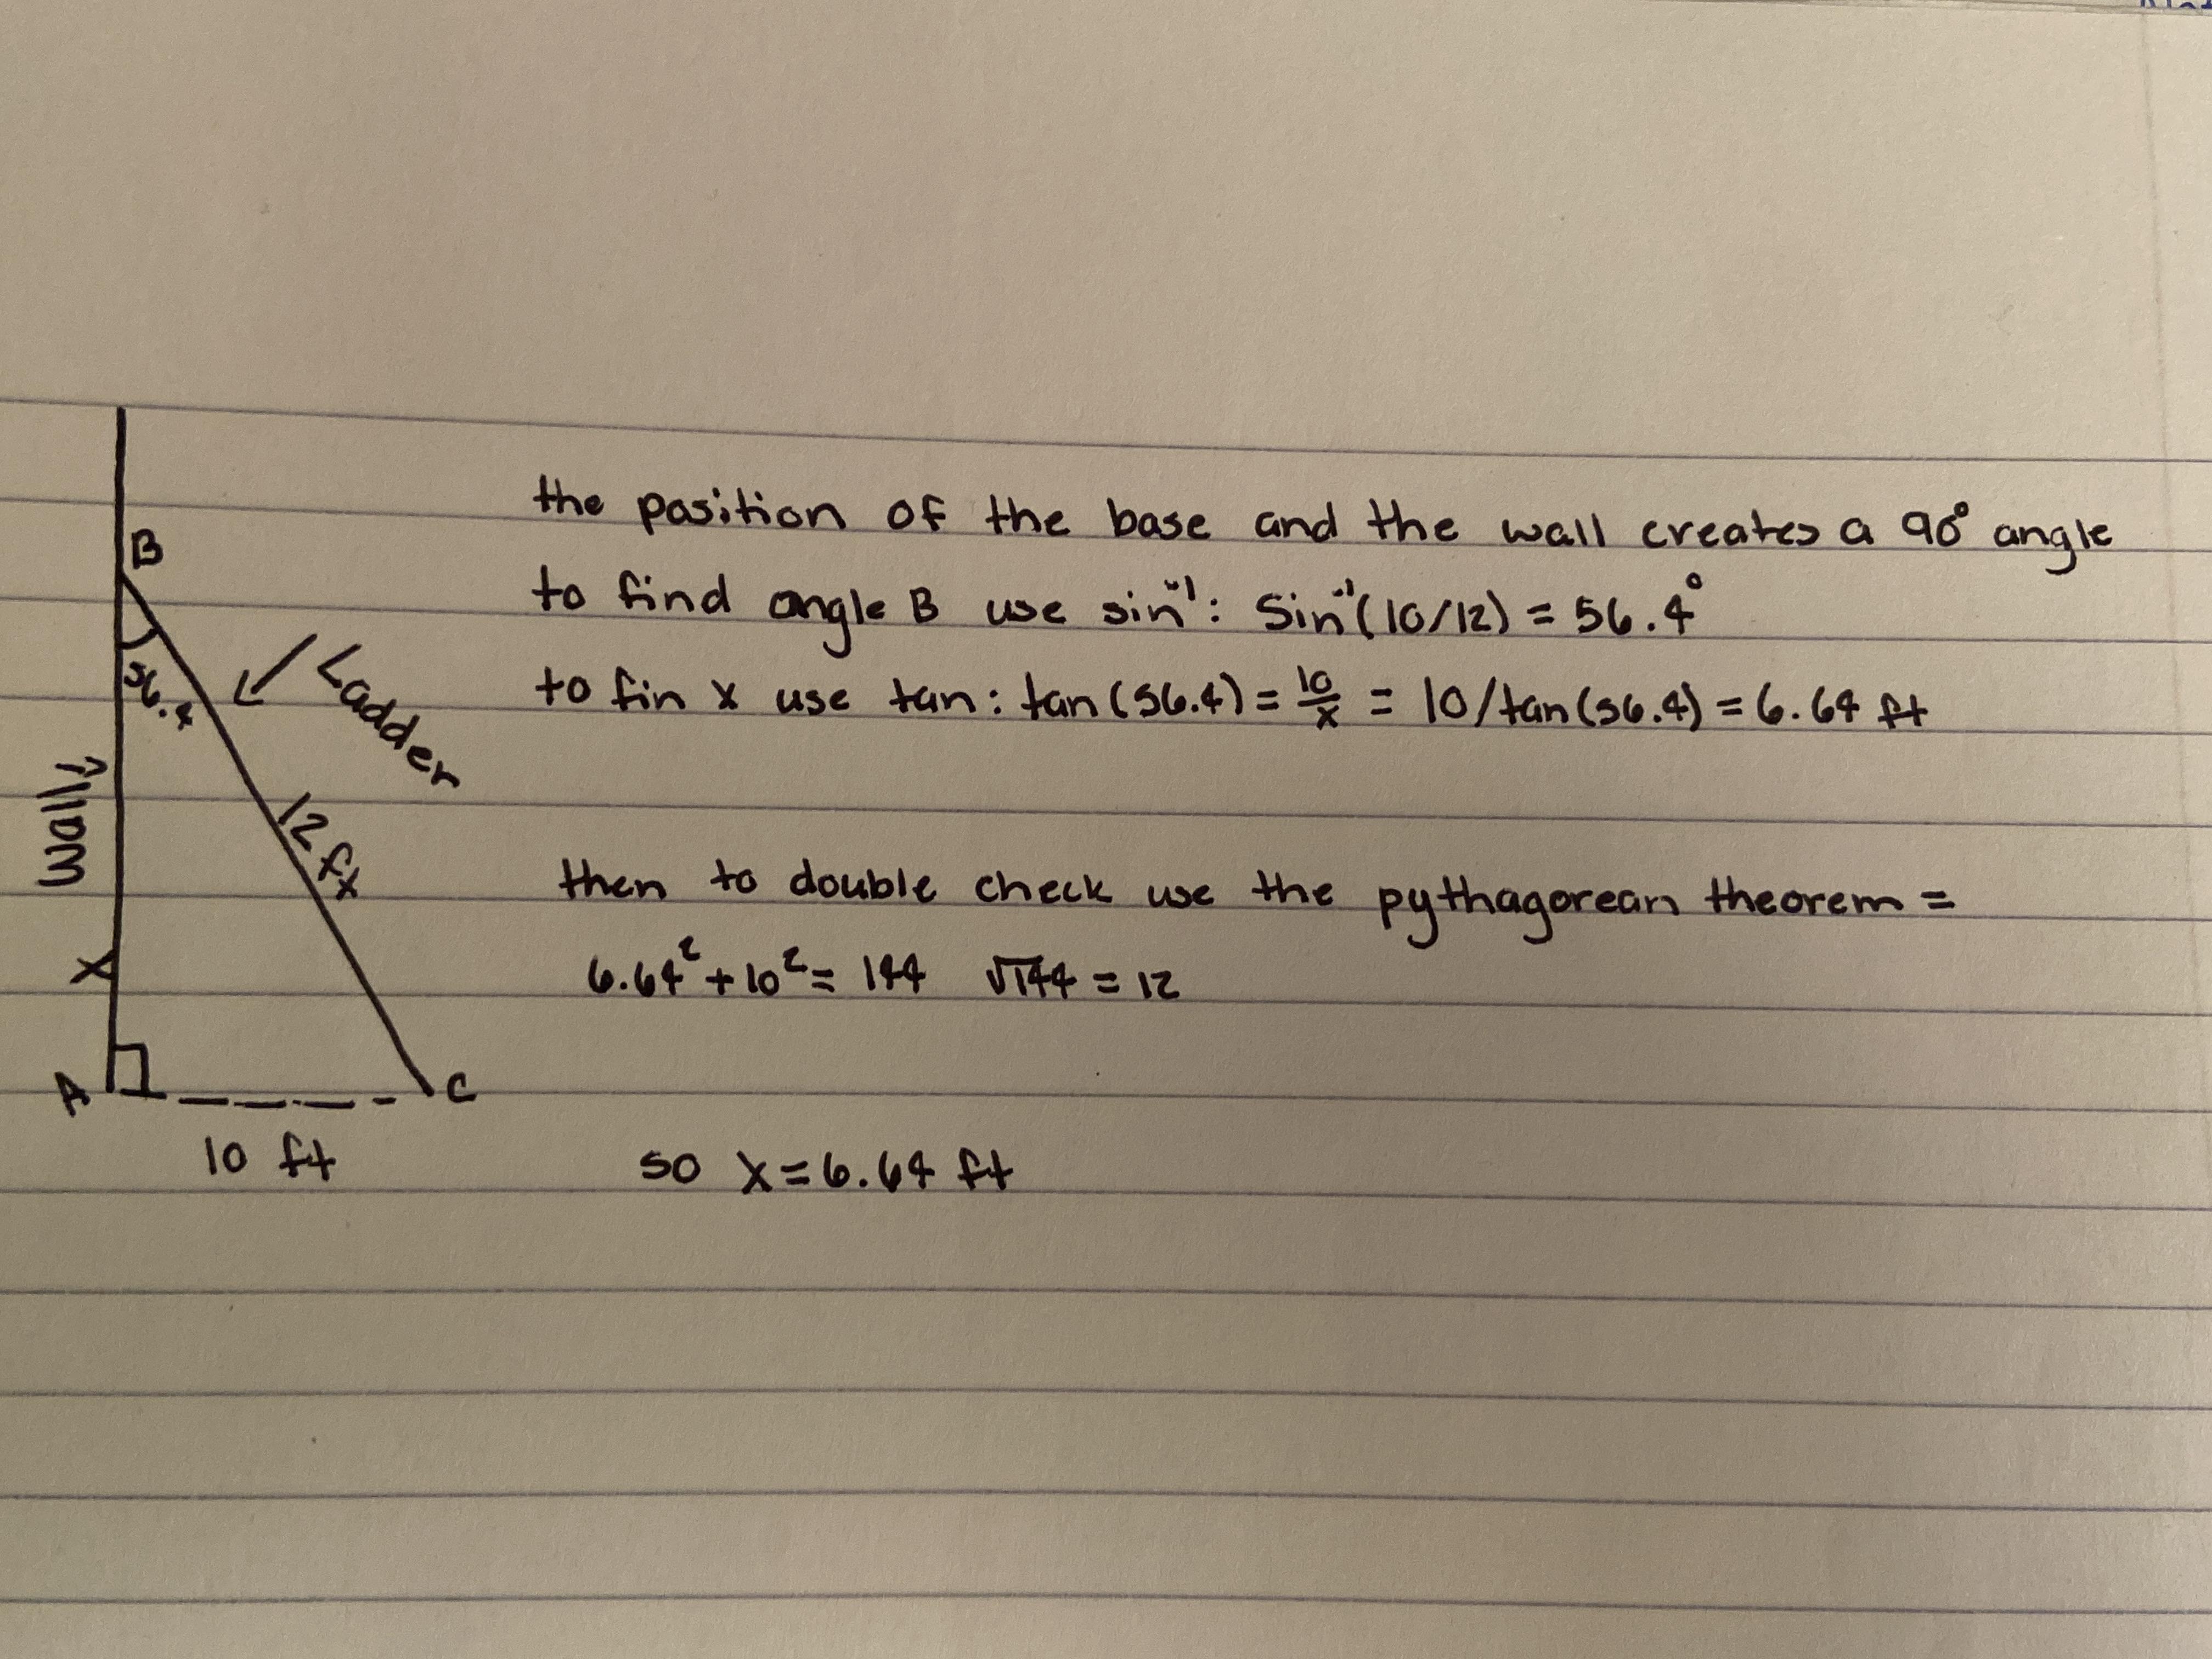 the position of the base and the wall creates a 90° angle
B
to find angle B use sin⁻¹: Sin⁻¹(10/12) = 56.4°
56.4
Ladder
to fin x use tan: tan(56.4) = 10/x = 10/tan(56.4) = 6.64 ft
Wall
12 ft
then to double check use the pythagorean theorem =
X
6.64² + 10² = 144 √144 = 12
A
C
10 ft
so x = 6.64 ft